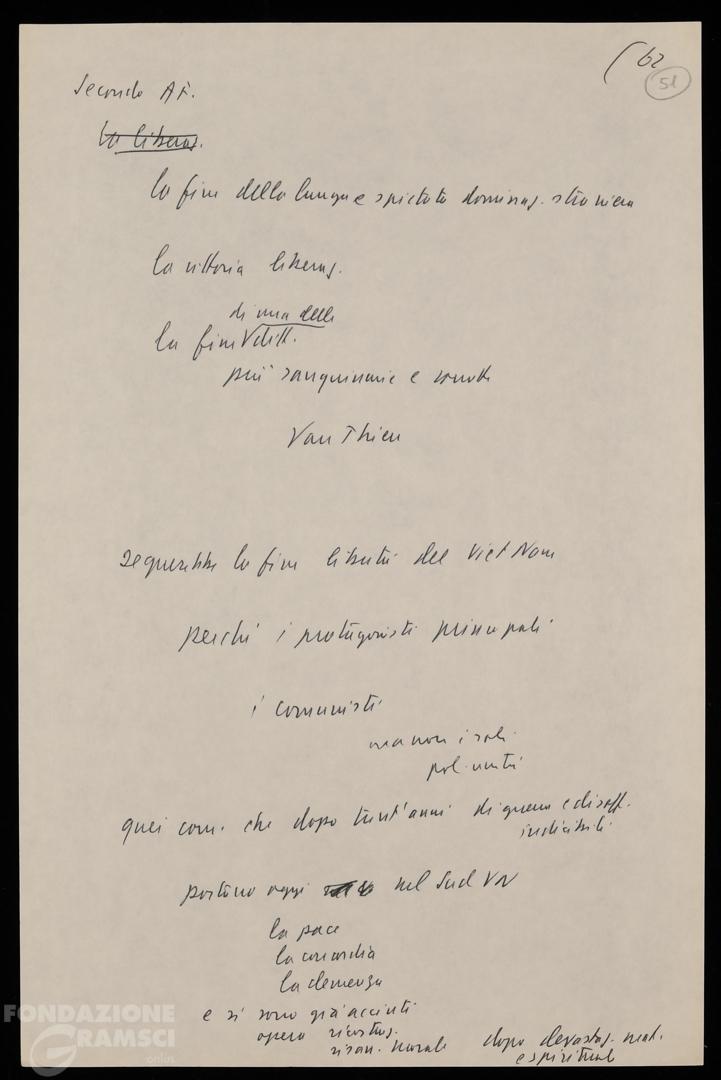 62
51
Secondo A F.
La liberaz.
la fine della lunga e spietata dominaz. straniera
la vittoria liberaz.
di una delle
la fine V ditt.
più sanguinarie e corrotte
Van Thieu
segnerebbe la fine libertà del Viet Nam
perché i protagonisti principali
i comunisti
ma non i soli
pol. unità
quei com. che dopo trent'anni di guerra e di soff.
indicibili
portano oggi nel Sud VN
la pace
la concordia
la clemenza
e si sono già accinti
opera ricostruz.
risan. morale dopo devastaz. mat.
e spirituali
FONDAZIONE
GRAMSCI
onlus